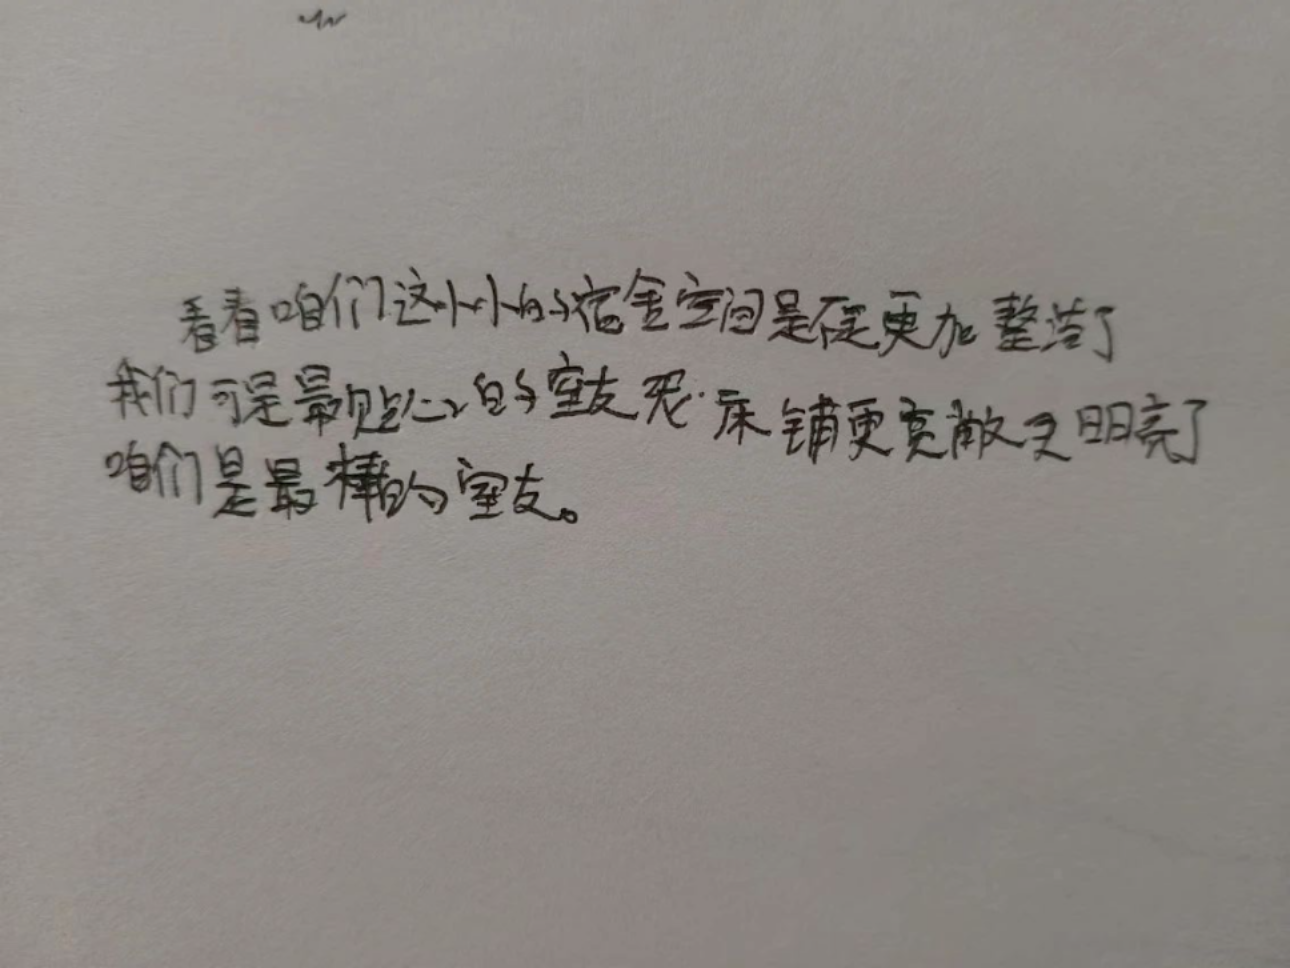 看看咱们这小小的宿舍空间是否是更加整洁了
我们可是最贴心的室友呢.床铺更宽敞又明亮了
咱们是最棒的室友。